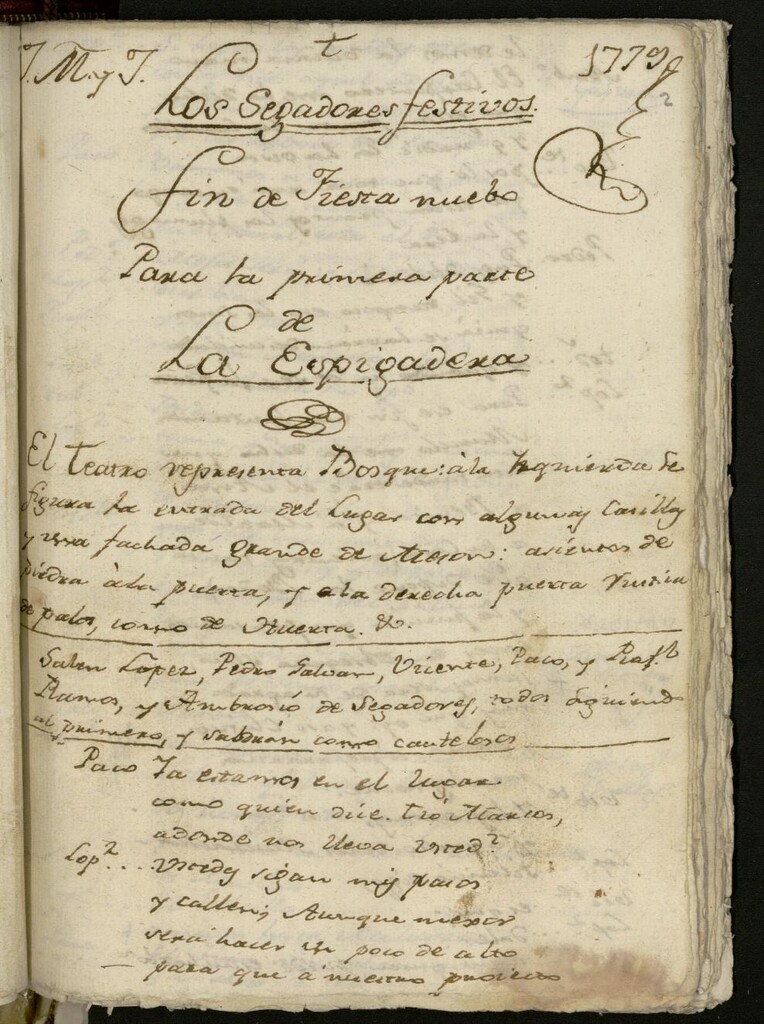 J. M. y J. † 1779
2
Los Segadores festivos.
Fin de Fiesta nuebo
Para la primera parte
de
La Espigadera
El teatro representa Bosque: à la Izquierda se
figura la entrada del Lugar con algunas Casillas
y una fachada grande de Meson: asientos de
piedra à la puerta, y a la derecha puerta rustica
de palos, como de Huerta. &.
Salen Lopez, Pedro Galvan, Vicente, Paco, y Raf.l
Ramos, y Ambrosio de Segadores, todos siguiendo
al primero, y saldrán como cautelosos
Paco Ya estamos en el lugar
como quien dice. tio Marcos,
adonde nos lleva Usted?
Lop.z .. Ustedes sigan mis pasos
y callen; Aunque mexor
será hacer un poco de alto
para que à nuestro proiecto